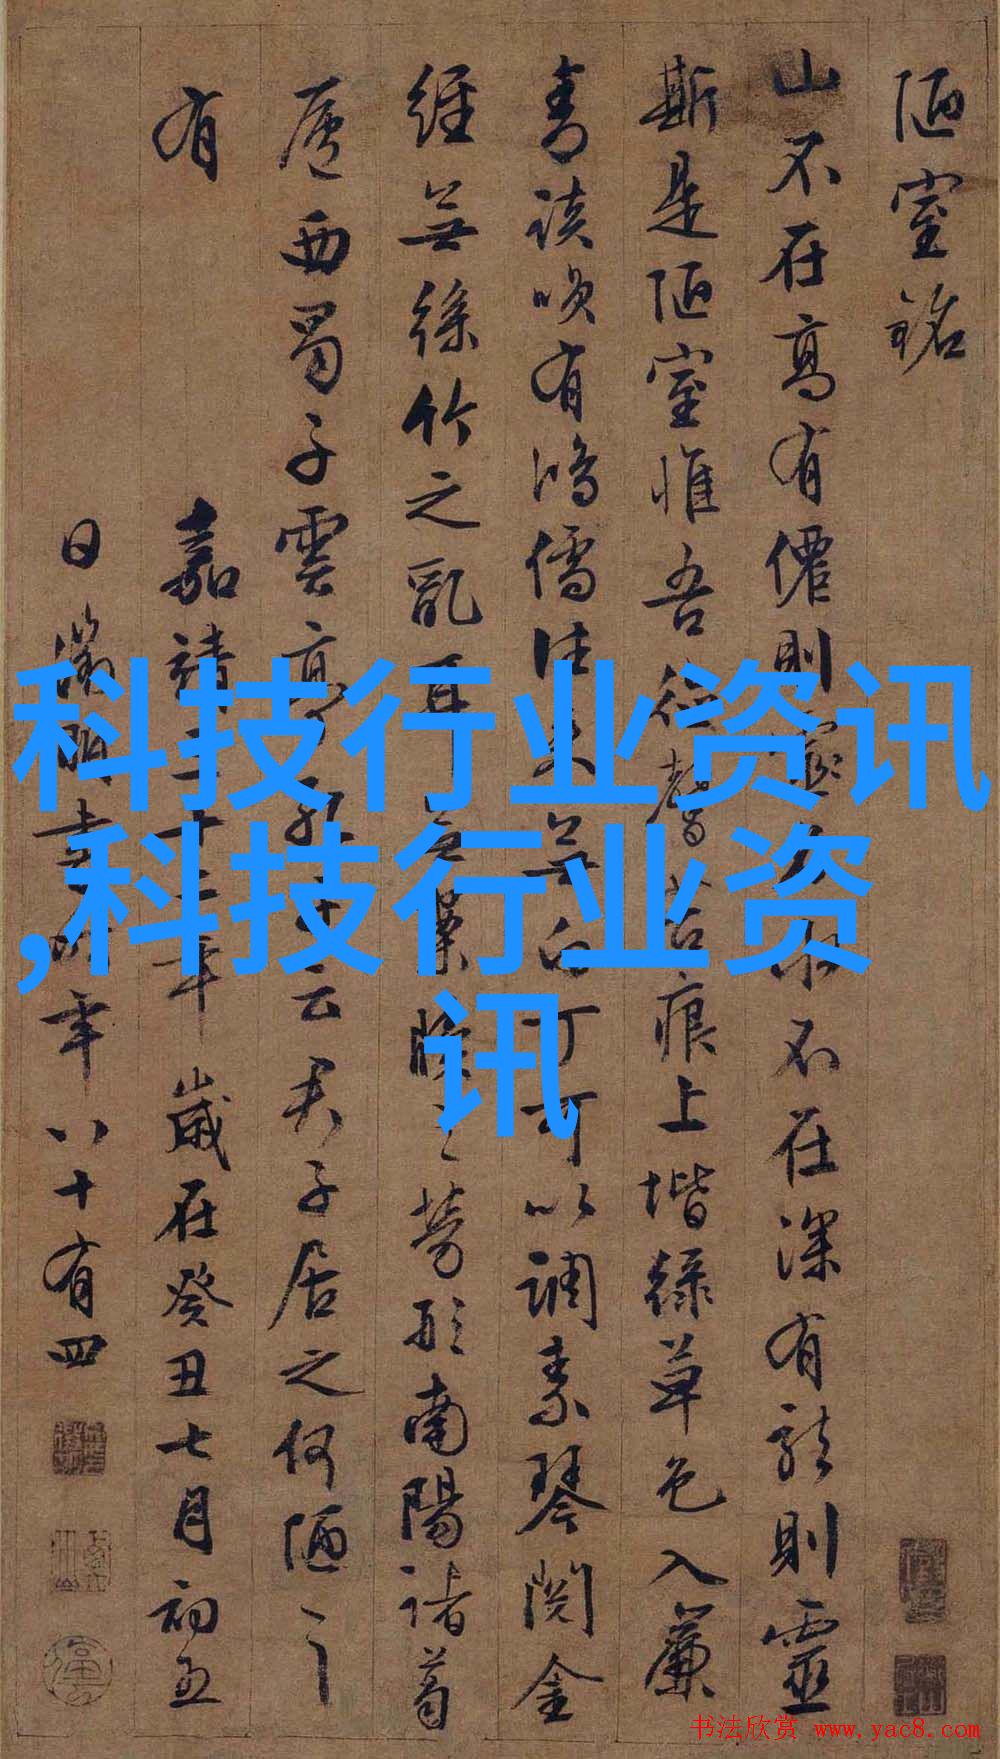 陋室銘
山不在高有僊則 不在深有龍則靈
斯是陋室惟吾德馨苔痕上堦緑草色入簾
青談咲有鴻儒往来無白丁可以調素琴閱金
經無絲竹之亂耳無案牘之勞形南陽諸葛
廬西蜀子雲亭孔子云君子居之何陋之
有
嘉靖三十二年歲在癸丑七月初五
日徵明書時年八十有四
科技行业资讯
,科技行业资
讯
书法欣赏 www.yac8.com